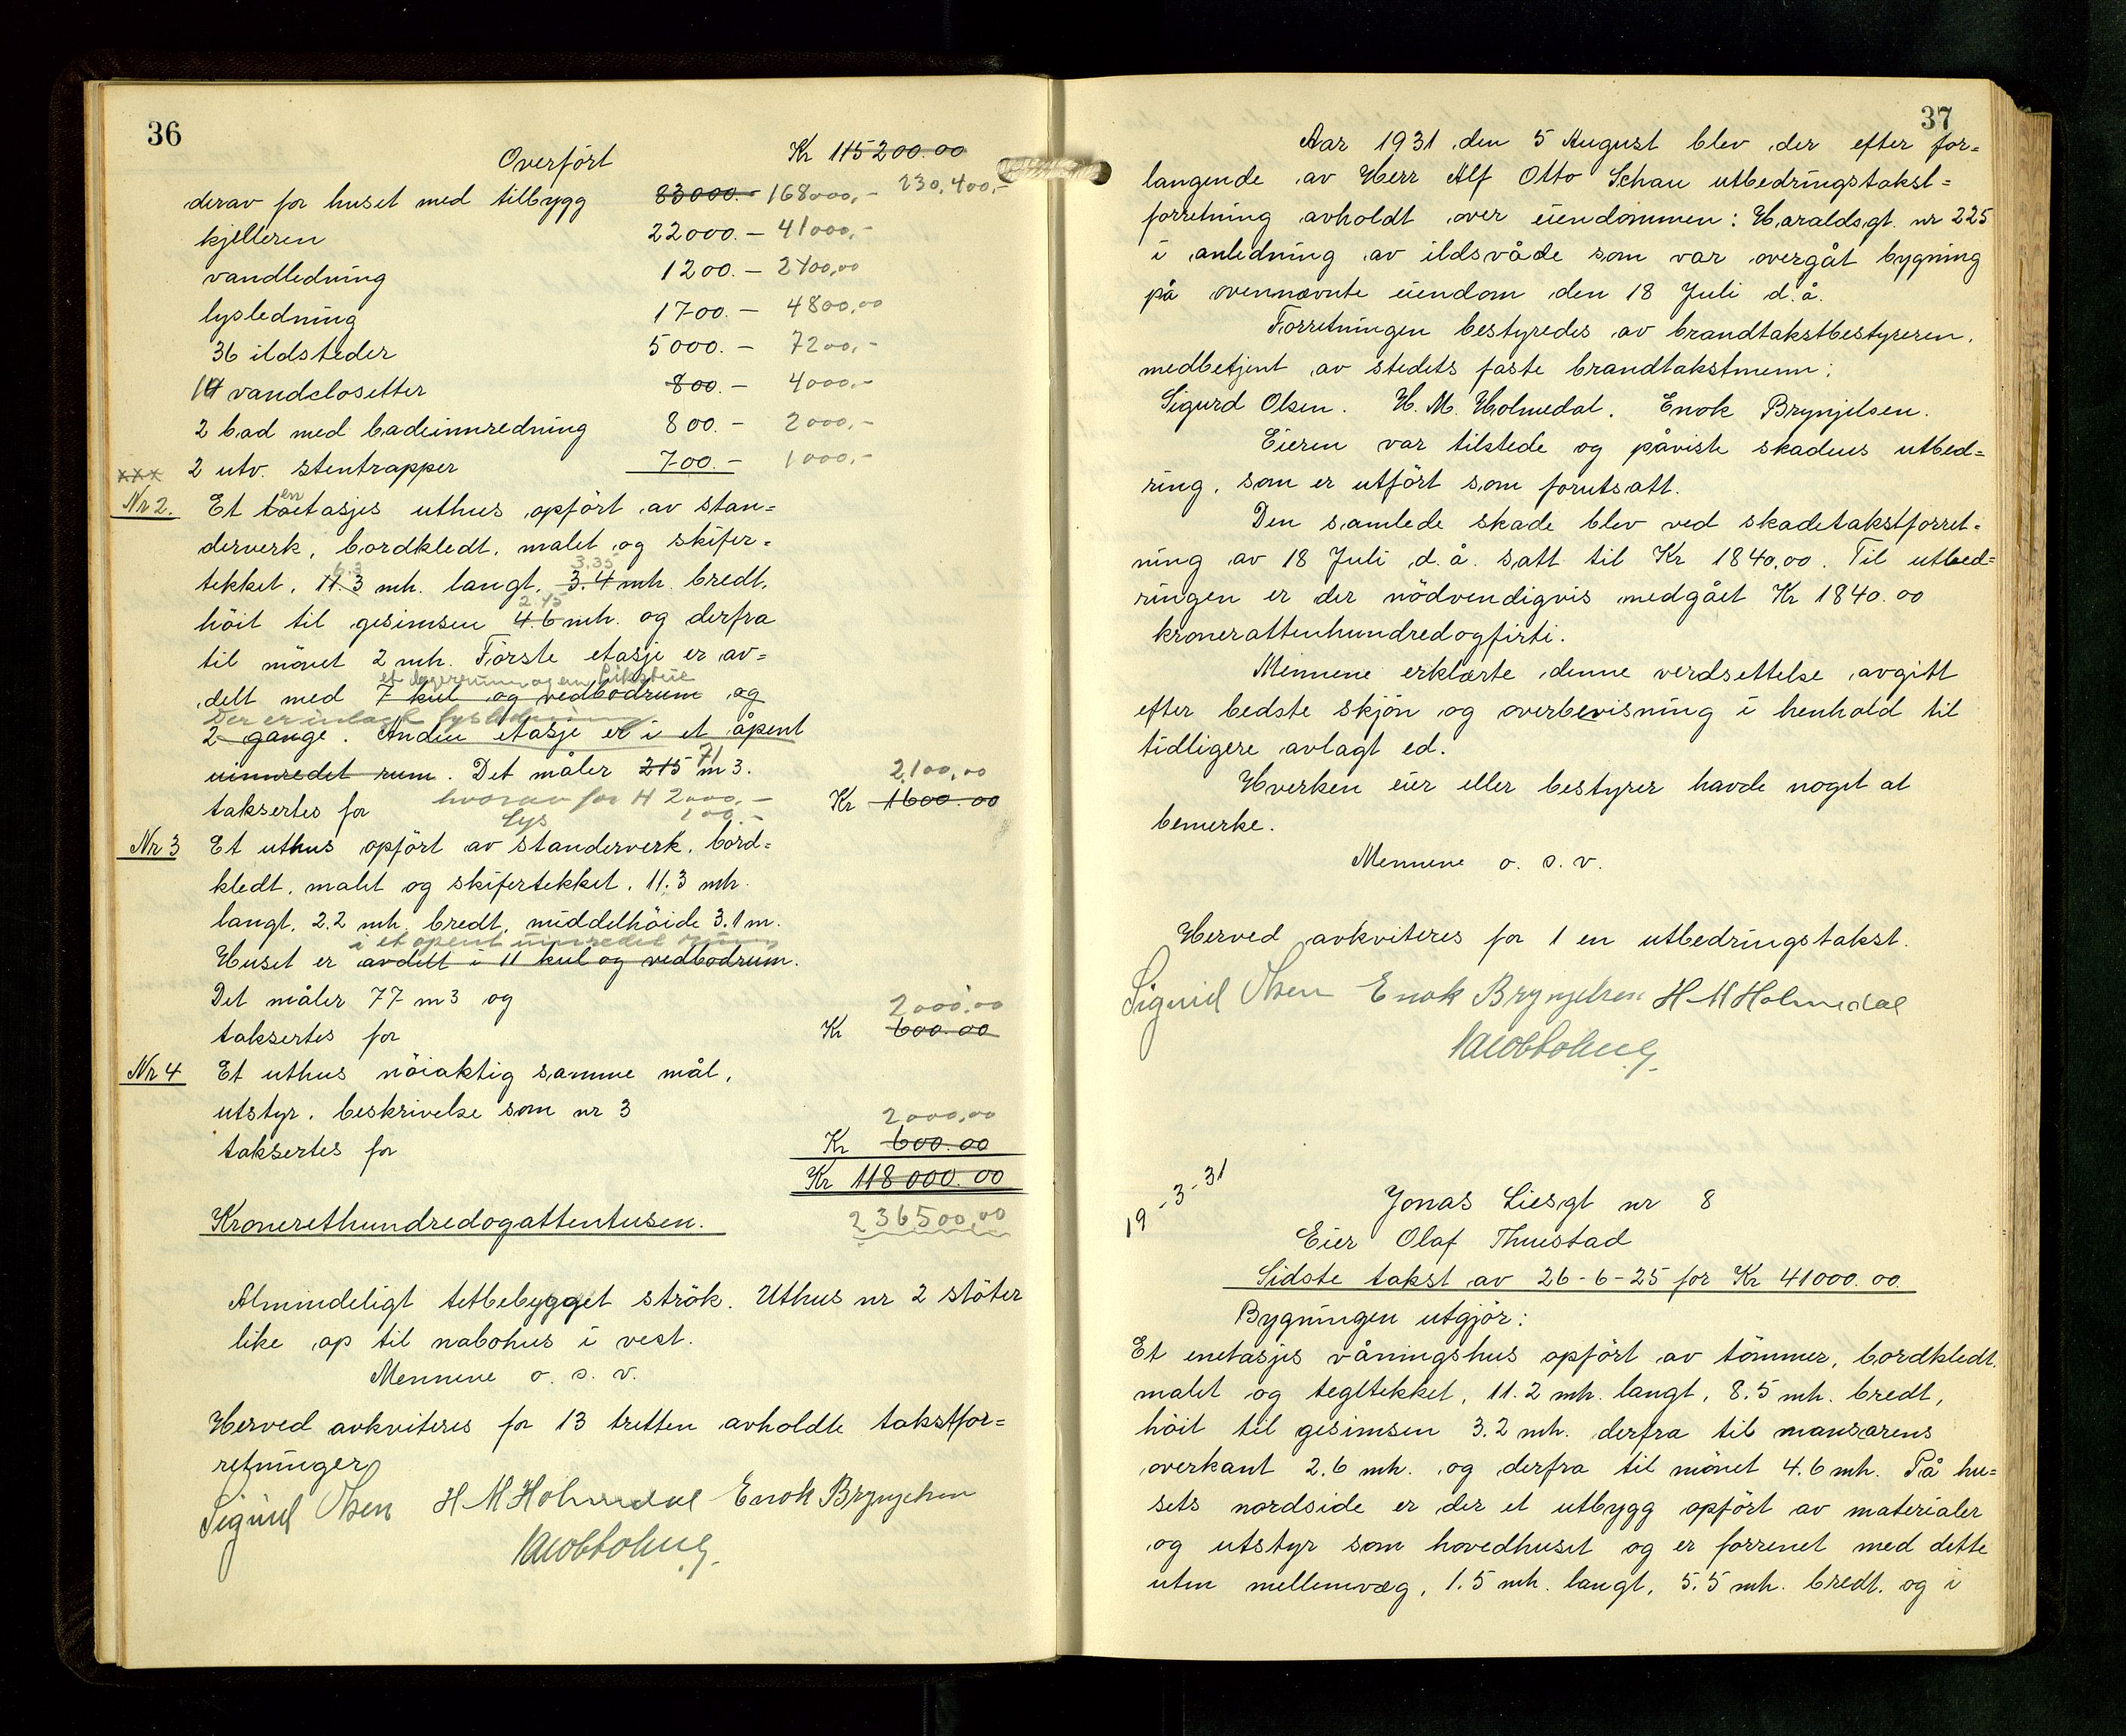 36
Overført Kr 115200.00
derav for huset med tilbygg 83000.- 168000,- 230,400,-
kjelleren 22000.- 41000,-
vandledning 1200.- 2400,00
lysledning 1700.- 4800,00
36 ildsteder 5000.- 7200,-
vandclosetter 800.- 4000,-
2 bad med badeinnredning 800.- 2000,-
xxx 2 utv. stentrapper 700.- 1000,-
en
Nr 2. Et toetasjes uthus opført av stan=
derverk, bordkledt, malet og skifer=
6.3 3.35
tekket, 11.3 mtr. langt, 3.4 mtr. bredt,
2.45
höit til gesimsen 4.6 mtr. og derfra
til mönet 2 mtr. Förste etasje er av=
et lagerrum og en
delt med 7 kul og vedbodrum og
Der er inlagt lysledning
2 gange. Anden etasje er i et åpent
71
uinnredet rum. Det måler 215 m3. 2,100,00
taksertes for hvorav for H 2000,- Kr 1600.00
lys 100.-
Nr 3 Et uthus opført av standerverk, bord=
kledt, malet og skifertekket, 11.3 mtr.
langt, 2.2 mtr. bredt, middelhöide 3.1 m.
i et åpent uinnredet rum
Huset er avdelt i 11 kul og vedbodrum.
Det måler 77 m3 og 2000.00
taksertes for Kr 600.00
Nr 4 Et uthus nöiaktig samme mål,
utstyr, beskrivelse som nr 3 2000,00
taksertes for Kr 600.00
Kr 118000.00
Kronerethundredogattentusen. 236500,00
Almindeligt tetbebygget strök. Uthus nr 2 stöter
like op til nabohus i vest.
Mennene o. s. v.
Herved avkviteres for 13 tretten avholdte takstfor=
retninger
Sigurd Olsen H M Holmedal Enok Brynjelsen
37
Aar 1931 den 5 August blev der efter for=
langende av Herr Alf Otto Schau utbedringstakst=
forretning avholdt over eiendommen: Haraldsgt. nr 225
i anledning av ildsvåde som var overgåt bygning
på ovennævnte eiendom den 18 Juli d.å.
Forretningen bestyredes av brandtakstbestyreren,
medbetjent av stedets faste brandtakstmenn:
Sigurd Olsen. H. M. Holmedal. Enok Brynjelsen.
Eieren var tilstede og påviste skadens utbed=
ring, som er utfört som forutsatt.
Den samlede skade blev ved skadetakstforret=
ning av 18 Juli d.å. satt til Kr 1840,00. Til utbed=
ringen er der nödvendigvis medgået Kr 1840.00
kronerattenhundredogfirti.
Mennene erklærte denne verdsettelse avgitt
efter bedste skjön og overbevisning i henhold til
tidligere avlagt ed.
Hverken eier eller bestyrer havde noget at
bemerke.
Mennene o. s. v.
Herved avkviteres for 1 en utbedringstakst.
Sigurd Olsen Enok Brynjelsen H M Holmedal
19-3-31
Jonas Liesgt nr 8
Eier Olaf Thuestad
Sidste takst av 26-6-25 for Kr 41000.00.
Bygningen utgjör:
Et enetasjes våningshus opfört av tömmer, bordkledt,
malet og tegltekket, 11.2 mtr. langt, 8.5 mtr. bredt,
höit til gesimsen 3.2 mtr. derfra til mansarens
overkant 2.6 mtr. og derfra til mönet 4.6 mtr. På hu=
sets nordside er der et utbygg opfört av materialer
og utstyr som hovedhuset og er forrenet med dette
uten mellemvæg, 1.5 mtr. langt, 5.5 mtr. bredt, og i